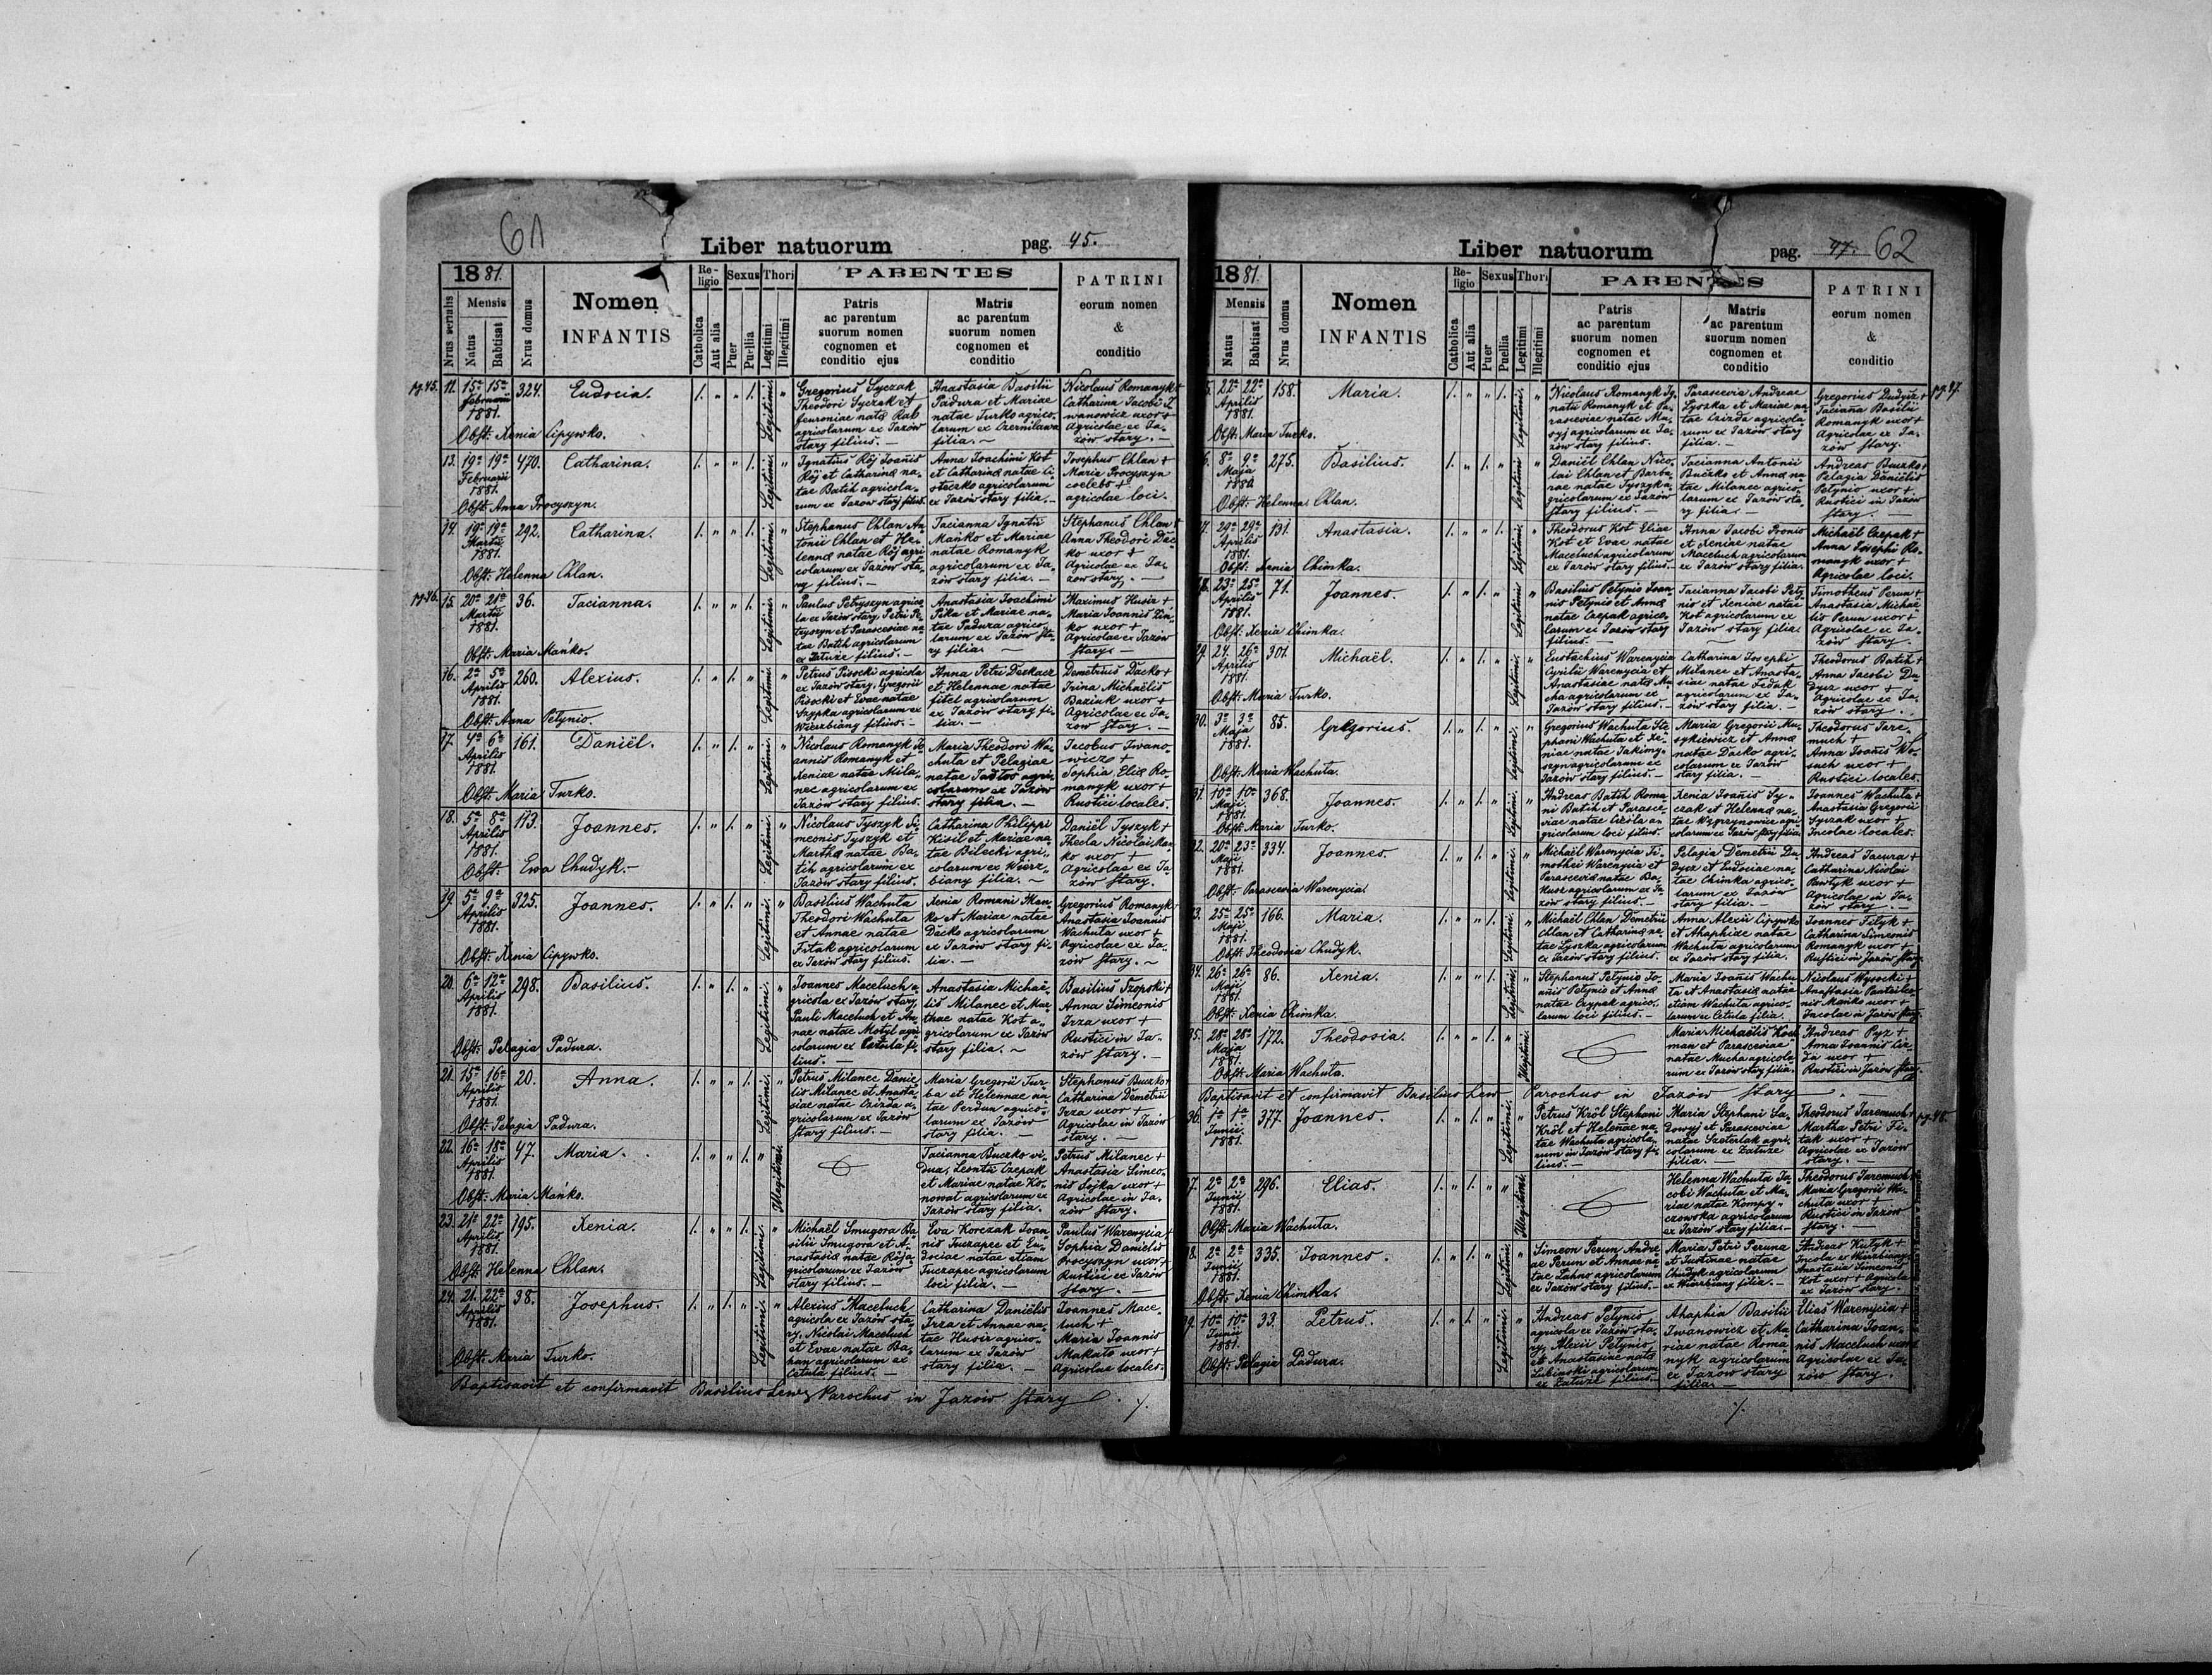 61
Liber natuorum pag. 45.
1881.
Nrus serialis
Mensis
Natus
Babtisat
Nrus domus
Nomen
INFANTIS
Re-
ligio
Catholica
Aut alia
Sexus
Puer
Puellia
Thori
Legitimi
Illegitimi
PARENTES
Patris
ac parentum
suorum nomen
cognomen et
conditio ejus
Matris
ac parentum
suorum nomen
cognomen et
conditio
PATRINI
eorum nomen
&
conditio
pg 45. 15ª 15ª Februarii 1881. 324. Eudocia.
Obst: Xenia Cipywko.
Legitimi.
Gregorius Syczak
Theodori Syczak et
agricolarum ex Jazów
stary filius. —
Anastasia Basilii
Padura et Mariae
natae Turko agrico-
larum ex Czernilawa
filia. ~
Nicolaus Romanyk +
Catharina Jacobi I
wanowicz uxor +
Agricolae ex Ja-
zów stary. —
13. 19ª 19ª Februarii 1881. 470. Catharina.
Obst: Anna Procyszyn.
Legitimi.
Ignatius Rój Joañis
Rój et Catharinæ na-
tae Batih agricola-
rum ex Jazów stary filius.
Anna Joachimi Kot
et Catharinæ natae Ci
steczko agricolarum
ex Jazów stary filia. —
Josephus Chlan +
Maria Procyszyn
coelebs +
agricolae loci.
14. 19ª 19ª Martii 1881. 292. Catharina.
Obst: Helenna Chlan.
Legitimi.
Stephanus Chlan An
tonii Chlan et He-
lennæ natae Rój agri
colarum ex Jazów sta-
ry filius. —
Tacianna Ignatii
Mańko et Mariae
natae Romanyk
agricolarum ex Ja-
zów stary filia. —
Stephanus Chlan +
Anna Theodori Dac-
ko uxor +
Agricolae ex Ja-
zów stary. —
pg 46. 15. 20ª 21ª Martii 1881. 36. Tacianna.
Obst: Maria Mańko.
Legitimi.
Paulus Petryszyn agrico
la ex Jazów stary, Petri Pe
tryszyn et Parasceviae na
tae Batih agricolarum
ex Załuże filius. —
Anastasia Joachimi
Pika et Mariae na-
tae Padura agrico-
larum ex Jazów sta-
ry filia. ~
Maximus Husia +
Maria Joannis Zin-
ko uxor +
Agricolae ex Jazów
stary. —
16. 2ª 5ª Aprilis 1881. 260. Alexius.
Obst: Anna Petynio.
Legitimi.
Petrus Pisocki agricola
ex Jazów stary, Gregorii
Pisocki et Evae natae
Szypka agricolarum ex
Wierzbiany filius. —
Anna Petri Derkacz
et Helennae natae
Fitel agricolarum
ex Jazów stary fi-
lia. —
Demetrius Dacko +
Irina Michaëlis
Baziuk uxor +
Agricolae ex Ja-
zów stary. —
17. 4ª 6ª Aprilis 1881. 161. Daniël.
Obst: Maria Turko.
Legitimi.
Nicolaus Romanyk Jo
annis Romanyk et
Xeniae natae Mila-
nec agricolarum ex
Jazów stary filius. —
Maria Theodori Wa-
chuta et Pelagiae
natae agri-
colarum ex Jazów
stary filia. —
Jacobus Iwano-
wicz +
Sophia Eliæ Ro-
manyk uxor +
Rustici locales.
18. 5ª 8ª Aprilis 1881. 113. Joannes.
Obst: Ewa Chudyk. —
Legitimi.
Nicolaus Tyszyk Si-
meonis Tyszyk et
Marthæ natae Ba-
tih agricolarum ex
Jazów stary filius.
Catharina Philippi
Kisil et Mariae na-
tae Bilecki agri-
colarum ex Wierz-
biany filia. ~
Daniël Tyszyk +
Thecla Nicolai Man-
ko uxor +
Agricolae ex Ja
zów stary.
19. 5ª 9ª Aprilis 1881. 325. Joannes.
Obst: Xenia Cipywko.
Legitimi.
Basilius Wachuta
Theodori Wachuta
et Annae natae
Fitak agricolarum
ex Jazów stary filius.
Xenia Romani Man-
ko et Mariae natae
Dacko agricolarum
ex Jazów stary fi-
lia. —
Gregorius Romanyk +
Anastasia Joannis
Wachuta uxor +
Agricolae ex Ja-
zów stary. ~
20. 6ª 12ª Aprilis 1881. 298. Basilius.
Obst: Pelagia Padura.
Legitimi.
Joannes Maceluch a-
gricola ex Jazów stary,
Pauli Maceluch et An-
nae natae Motyl agri
colarum ex Cetula fi-
lius. —
Anastasia Michaë-
lis Milanec et Mar-
thae natae Kot a-
gricolarum ex Jazów
stary filia. ~
Basilius Szopski +
Anna Simeonis
Irza uxor +
Rustici in Ja-
zów stary. —
21. 15ª 16ª Aprilis 1881. 20. Anna.
Obst: Pelagia Padura.
Legitimi.
Petrus Milanec Danie
lis Milanec et Anasta-
siae natae Czizda a-
gricolarum ex Jazów
stary filius. —
Maria Gregorii Tur-
ba et Helennae na-
tae Perdun agrico-
larum ex Jazów
stary filia. —
Stephanus Buczko +
Catharina Demetrii
Irza uxor +
Agricolae in Jazów
stary. —
22. 16ª 18ª Aprilis 1881. 47. Maria.
Obst: Maria Mańko.
Illegitimi.
Tacianna Buczko vi-
dua, Leontii Czepak
et Mariae natae Ko-
nowat agricolarum ex
Jazów stary filia.
Petrus Milanec +
Anastasia Simeo-
nis Sojka uxor +
Agricolae in Ja-
zów stary.
23. 21ª 22ª Aprilis 1881. 195. Xenia.
Obst: Helenna Chlan.
Legitimi.
Michaël Smugora Ba
silii Smugora et A-
nastasiæ natae Rój a-
gricolarum ex Jazów
stary filius. —
Eva Korczak Joan-
nis Tuczapec et Eu-
dociae natae etiam
Tuczapec agricolarum
loci filia. —
Paulus Warenycia +
Sophia Danielis
Procyszyn uxor +
Rustici ex Jazów
stary. —
24. 21. 22ª Aprilis 1881. 38. Josephus.
Obst: Maria Turko.
Legitimi.
Alexius Maceluch
agricola ex Jazów sta-
ry, Nicolai Maceluch
et Evae natae Ba-
han agricolarum ex
Cetula filius. —
Catharina Daniëlis
Irza et Annae na-
tae Husir agrico-
larum ex Jazów
stary filia. —
Joannes Mace-
luch +
Maria Joannis
Makato uxor +
Agricolae locales.
Baptisavit et confirmavit Basilius Parochus in Jazów stary
62
Liber natuorum pag. 47.
1881.
Mensis
Natus
Babtisat
Nrus domus
Nomen
INFANTIS
Re-
ligio
Catholica
Aut alia
Sexus
Puer
Puellia
Thori
Legitimi
Illegitimi
PARENTES
Patris
ac parentum
suorum nomen
cognomen et
conditio ejus
Matris
ac parentum
suorum nomen
cognomen et
conditio
PATRINI
eorum nomen
&
conditio
5. 22ª 22ª Aprilis 1881. 158. Maria. pg 47.
Obst: Maria Turko.
Legitimi.
Nicolaus Romanyk Ig
natii Romanyk et Pa-
rasceviae natae Ma-
syj agricolarum ex Ja-
zów stary filius.
Parascevia Andreae
Łyszka et Mariae na-
tae Czizda agricola-
rum ex Jazów stary
filia. —
Gregorius Dudycz +
Tacianna Basilii
Romanyk uxor +
Agricolae ex Ja-
zów stary.
6. 8ª 9ª Maja 275. Basilius.
Obst: Helenna Chlan.
Legitimi
Daniël Chlan Nico-
lai Chlan et Barba-
rae natae Tyszyk a-
gricolarum ex Jazów
stary filius. —
Tacianna Antonii
Buczko et Annæ na-
tae Milanec agrico-
larum ex Jazów sta-
ry filia. —
Andreas Buczko +
Pelagia Daniëlis
Petynio uxor +
Rustici in Jazów
stary. —
29ª 29ª Aprilis 1881. 131. Anastasia.
Obst: Xenia Chimka.
Legitimi.
Theodorus Kot Eliae
Kot et Evae natae
Maceluch agricolarum
ex Jazów stary filius. —
Anna Jacobi Pronio
et Xeniae natae
Maceluch agricolarum
ex Jazów stary filia.
Michaël Czepak +
Anna Josephi Ro-
manyk uxor +
Agricolae loci.
23ª 25ª Aprilis 1881. 71. Joannes.
Obst: Xenia Chimka.
Legitimi.
Basilius Petynio Joan
nis Petynio et Annæ
natae Czepak agrico-
larum ex Jazów stary
filius. —
Tacianna Jacobi Pety
nio et Xeniae natae
Kot agricolarum ex
Jazów stary filia.
Timotheus Perun +
Anastasia Michaë
lis Perun uxor +
Agricolae ex Ja-
zów stary. —
24. 26ª Aprilis 1881. 301. Michaël.
Obst: Maria Turko.
Legitimi.
Eustachius Warenycia
Cyrilii Warenycia et
Anastasiae natæ Mu
cha agricolarum ex
Jazów stary filius. —
Catharina Josephi
Milanec et Anasta-
siae natae Fidak
agricolarum ex Ja-
zów stary filia. —
Theodorus Batih +
Anna Jacobi Du
dycz uxor +
Agricolae ex Ja-
zów stary.
30. 3ª 3ª Maja 1881. 85. Gregorius.
Obst: Maria Wachuta.
Legitimi.
Gregorius Wachuta Ste
phani Wachuta et Xe-
niae natae Jakimy-
szyn agricolarum ex
Jazów stary filius. —
Maria Gregorii Mu-
sykiewicz et Annæ
natae Dacko agri-
colarum ex Jazów
stary filia. —
Theodorus Jare-
much +
Anna Joañis Wo-
such uxor +
Rustici locales.
31. 10ª 10ª Maji 1881. 368. Joannes.
Obst: Maria Turko.
Legitimi.
Andreas Batih Roma
ni Batih et Parasce-
viae natae Cicila a-
gricolarum loci filius.
Xenia Joañis Sy-
czak et Helennæ na-
tae Węgrzynowicz agri
colarum ex Jazów stary filia.
Joannes Wachuta +
Anastasia Gregorii
Syczak uxor +
Incolae locales.
32. 20ª 23ª Maji 1881. 334. Joannes.
Obst: Parascevia Warenycia.
Legitimi.
Michaël Warenycia Ti-
mothei Warenycia et
Parasceviæ natae Ba-
kusz agricolarum ex Ja-
zów stary filius. —
Pelagia Demetrii Du-
dycz et Eudociae na-
tae Chimka agrico-
larum ex Jazów
stary filia. —
Andreas Jacura +
Catharina Nicolai
Pawłyk uxor +
Agricolae in Ja-
zów stary. —
33. 25ª 25ª Maji 1881. 166. Maria.
Obst: Theodosia Chudyk.
Legitimi.
Michaël Chlan Demetrii
Chlan et Catharinæ na-
tae Łyszka agricolarum
ex Jazów stary filius.
Anna Alexii Cipywko
et Ahaphiae natae
Wachuta agricolarum
ex Jazów stary filia.
Joannes Filyk +
Catharina Simeonis
Romanyk uxor +
Rustici in Jazów stary.
34. 26ª 26ª Maji 1881. 86. Xenia.
Obst: Xenia Chimka.
Legitimi.
Stephanus Petynio Jo-
añis Petynio et Annæ
natae Czypak agrico-
larum loci filius. —
Maria Joañis Wachu-
ta et Anastasiæ natae
etiam Wachuta agrico-
larum ex Cetula filia.
Nicolaus Wysocki +
Anastasia Panteleo-
nis Mańko uxor +
Incolae in Jazów stary.
35. 28ª 28ª Maja 1881. 172. Theodosia.
Obst: Maria Wachuta.
Illegitimi.
Maria Michaëlis Koch
man et Parasceviae
natae Mucha agricola
rum ex Jazów stary filia.
Andreas Pyz +
Anna Joannis
uxor +
Rustici in Jazów stary.
Baptisavit et confirmavit Basilius Lew Parochus in Jazów stary
36. 1ª 1ª Junii 1881. 377. Joannes. pg 48.
Legitimi.
Petrus Król Stephani
Król et Heleñae na-
tae Wachuta agricola-
rum in Jazów stary fi-
lius. —
Maria Stephani Sa-
dowyj et Parasceviae
natae Szeterlak agri-
colarum ex Załuże
filia. —
Theodorus Jaremuch +
Martha Petri Fi-
tak uxor +
Agricolae ex Jazów
stary. —
37. 2ª 2ª Junii 1881. 296. Elias.
Obst: Maria Wachuta.
Illegitimi.
Helenna Wachuta Ja
cobi Wachuta et Ma-
riae natae Kompy-
czowska agricolarum
ex Jazów stary filia. —
Theodorus Jaremuch +
Maria Gregorii Wa-
chuta uxor +
Rustici in Jazów
stary. —
38. 2ª 2ª Junii 1881. 335. Joannes.
Obst: Xenia Chimka.
Legitimi.
Simeon Perun Andre-
ae Perun et Annae na-
tae Lahno agricolarum
ex Jazów stary filius. —
Maria Petri Peruna
et Justinae natae
Chudyk agricolarum
ex Wierzbiany filia. —
Andreas Kutyk +
Incola ex Wierzbiany,
Anastasia Simeonis
Kot uxor + Agricola
ex Jazów stary.
39. 10ª 10ª Junii 1881. 33. Petrus.
Obst: Pelagia Padura.
Legitimi.
Andreas Petynio
agricola ex Jazów sta-
ry, Alexii Petynio
et Anastasiae natæ
Lubinski agricolarum
ex Załuże filius. —
Ahaphia Basilii
Iwanowicz et Ma
riae natae Roma
nyk agricolarum
ex Jazów stary
filia —
Elias Warenycia +
Catharina Joan-
nis Maceluch uxor +
Agricolae ex Ja-
zów stary.